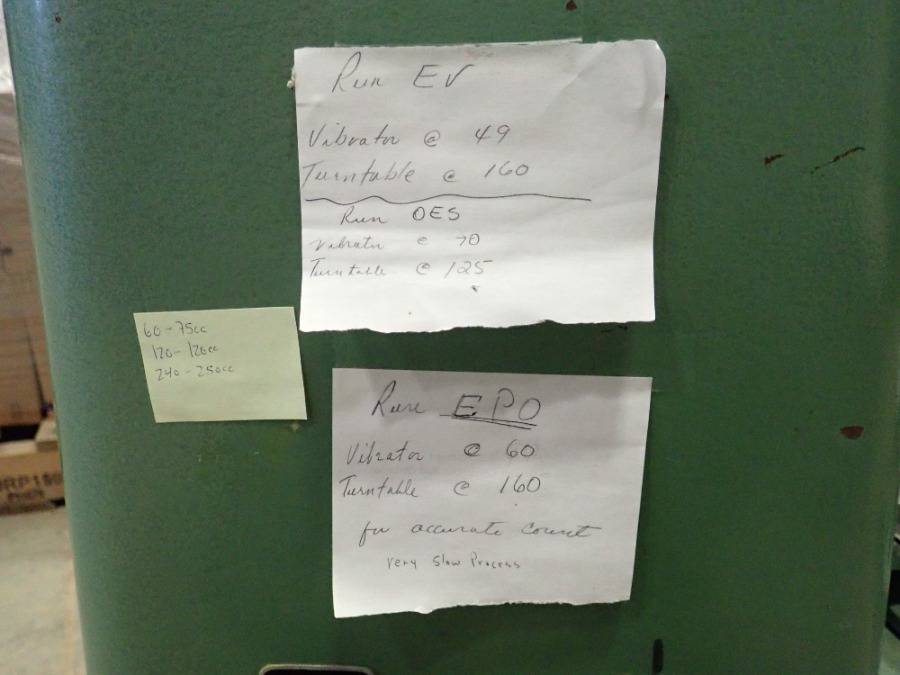 Run EV
Vibrator @ 49
Turntable @ 160
Run OES
Vibrator @ 70
Turntable @ 125
60-75cc
120-120cc
240-250cc
Run EPO
Vibrator @ 60
Turntable @ 160
for accurate count
very slow Process